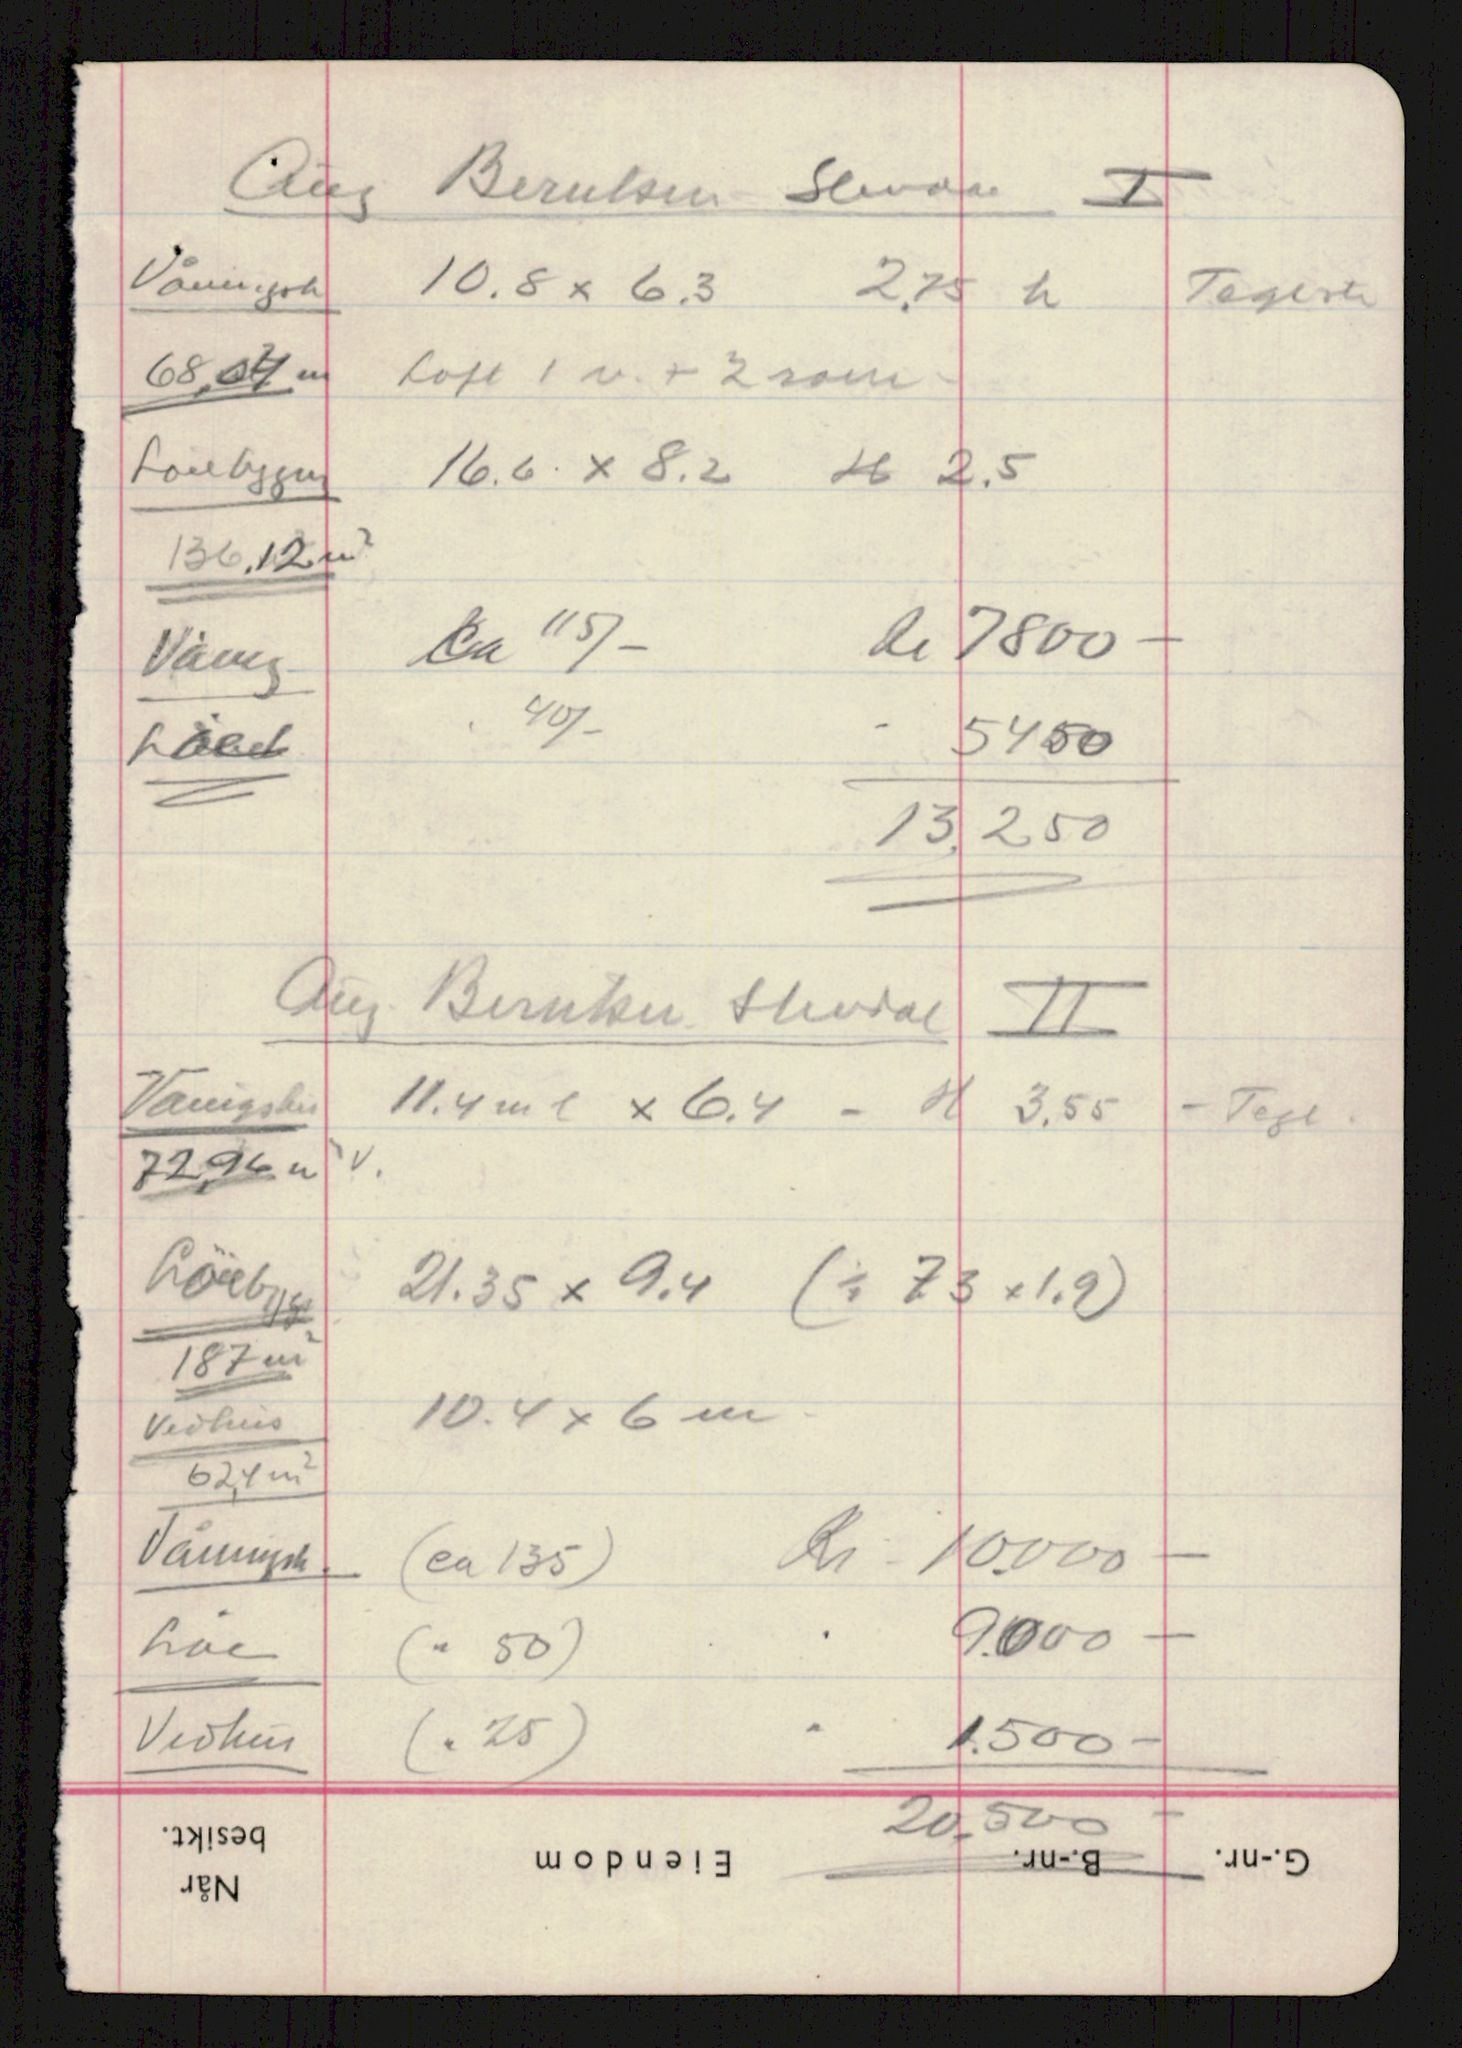 Aug Berntsen I
Våningsh 10.8 x 6.3 2,75 h Tegelste
68,04 m² Loft 1 v. + 2 rom
Löebyggn 16.6 x 8.2 H 2.5
136,12 m²
Vång Ca 115/- Kr 7800 —
Löed 40/- - 5450
13,250
Aug. Berntsen II
Vaningshus 11.4 m l x 6.4 - H 3.55 - Tegl.
72,96 m² v.
Löebygg 21.35 x 9.4 (÷ 7.3 x 1.9)
187 m²
Vedhus 10.4 x 6 m
62,4 m²
Våningsh. (ca 135) Kr 10.000 —
Löe (" 50) " 9.000 —
Vedhus (" 25) " 1.500 —
20.500 —
Når besikt. Eiendom B.-nr. G.-nr.